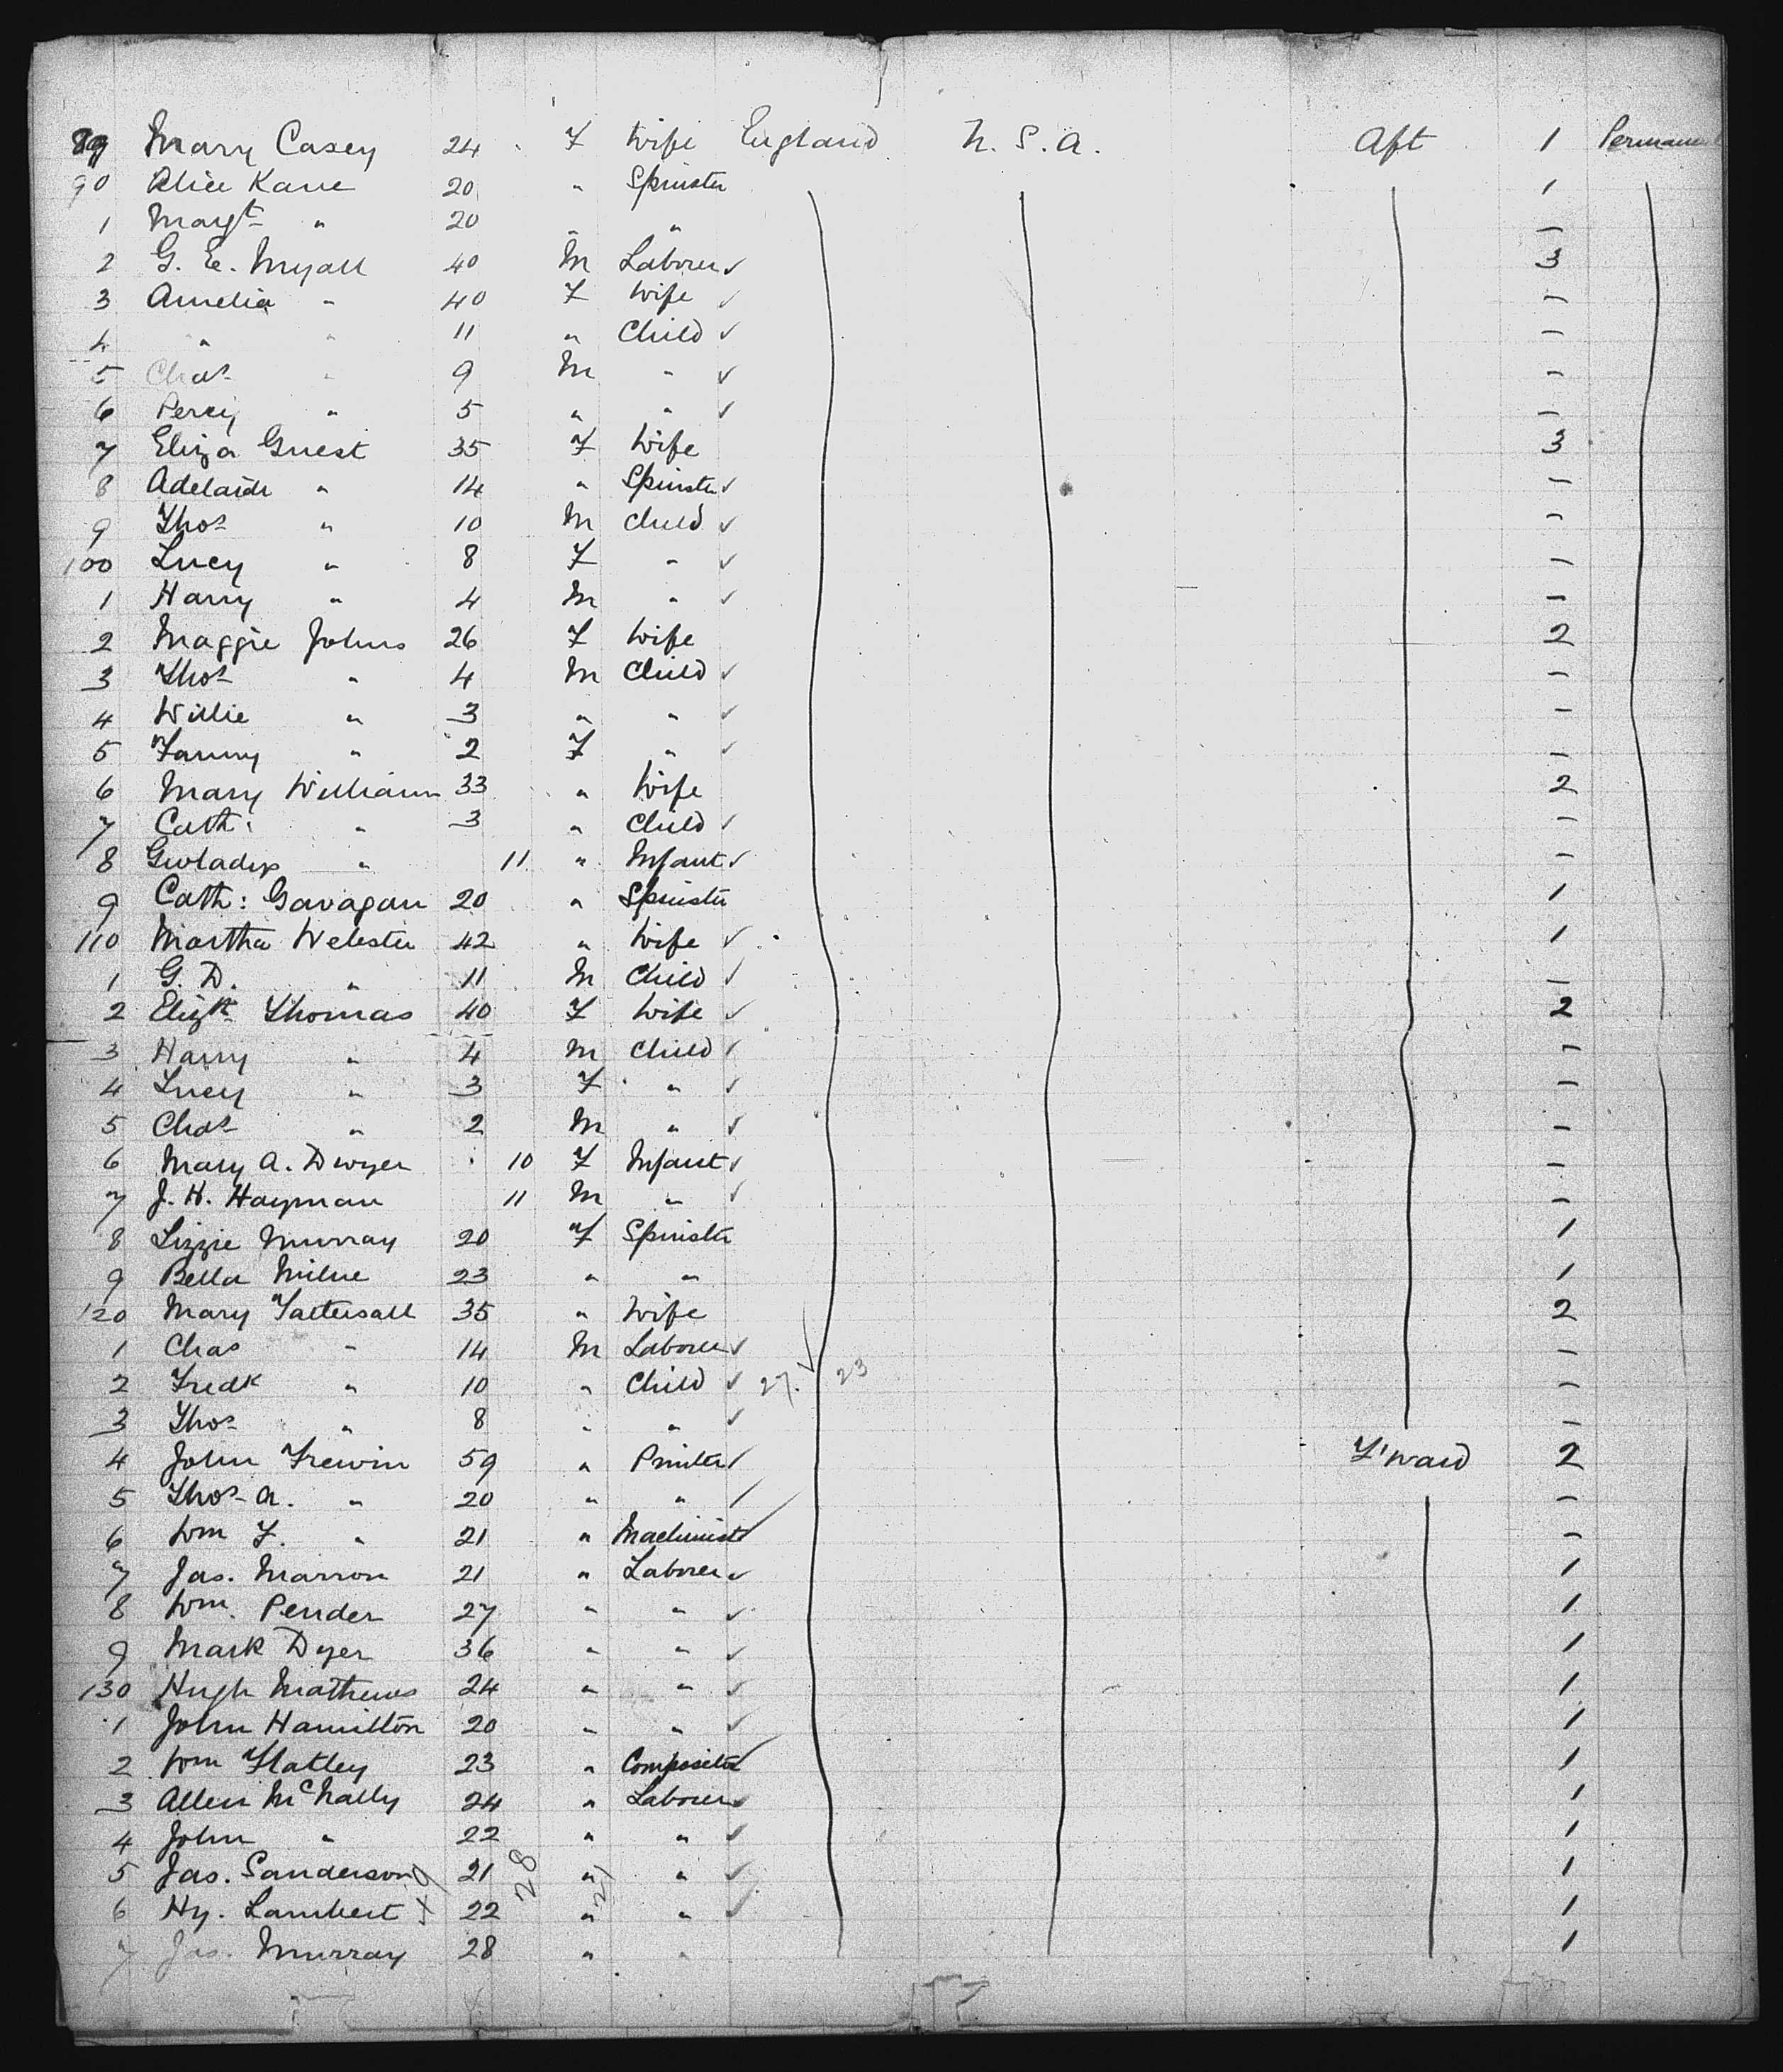 89 Mary Casey 24 F Wife England U.S.A. Aft 1 Permanent
90 Alice Kane 20 " Spinster 1
1 Margt " 20 " " —
2 G. E. Myall 40 M Laborer ✓ 3
3 Amelia " 40 F Wife ✓ —
4 " " 11 " Child ✓ —
5 Chas " 9 M " ✓ —
6 Percy " 5 " " ✓ —
7 Eliza Guest 35 F Wife 3
8 Adelaide " 14 " Spinster ✓ —
9 Thos " 10 M Child ✓ —
100 Lucy " 8 F " ✓ —
1 Harry " 4 M " ✓ —
2 Maggie Johns 26 F Wife 2
3 Thos " 4 M Child ✓ —
4 Willie " 3 " " ✓ —
5 Fanny " 2 F " ✓ —
6 Mary Williams 33 " Wife 2
7 Cath: " 3 " Child ✓ —
8 Gwladys " 11 " Infant ✓ —
9 Cath: Gavagan 20 " Spinster 1
110 Martha Webster 42 " Wife ✓ 1
1 G. D. " 11 M Child ✓ —
2 Elizth Thomas 40 F Wife ✓ 2
3 Harry " 4 M Child ✓ —
4 Lucy " 3 F " ✓ —
5 Chas " 2 M " ✓ —
6 Mary A. Dwyer 10 F Infant ✓ —
7 J. H. Hayman 11 M " ✓ —
8 Lizzie Murray 20 F Spinster 1
9 Bella Milne 23 " " 1
120 Mary Tattersall 35 " Wife 2
1 Chas " 14 M Laborer ✓ —
2 Fredk " 10 " Child ✓ 27. 23 —
3 Thos " 8 " " ✓ —
4 John Frewin 59 " Printer ✓ F'ward 2
5 Thos A. " 20 " " ✓ —
6 Wm F. " 21 " Machinist ✓ —
7 Jas. Marron 21 " Laborer ✓ 1
8 Wm. Pender 27 " " ✓ 1
9 Mark Dyer 36 " " ✓ 1
130 Hugh Mathews 24 " " ✓ 1
1 John Hamilton 20 " " ✓ 1
2 Wm Flatley 23 " Compositor ✓ 1
3 Allen McNally 24 " Laborer ✓ 1
4 John " 22 " " ✓ 1
5 Jas. Sanderson 21 28 " 21 " ✓ 1
6 Hy. Lambert 22 " " ✓ 1
7 Jas. Murray 28 " " 1